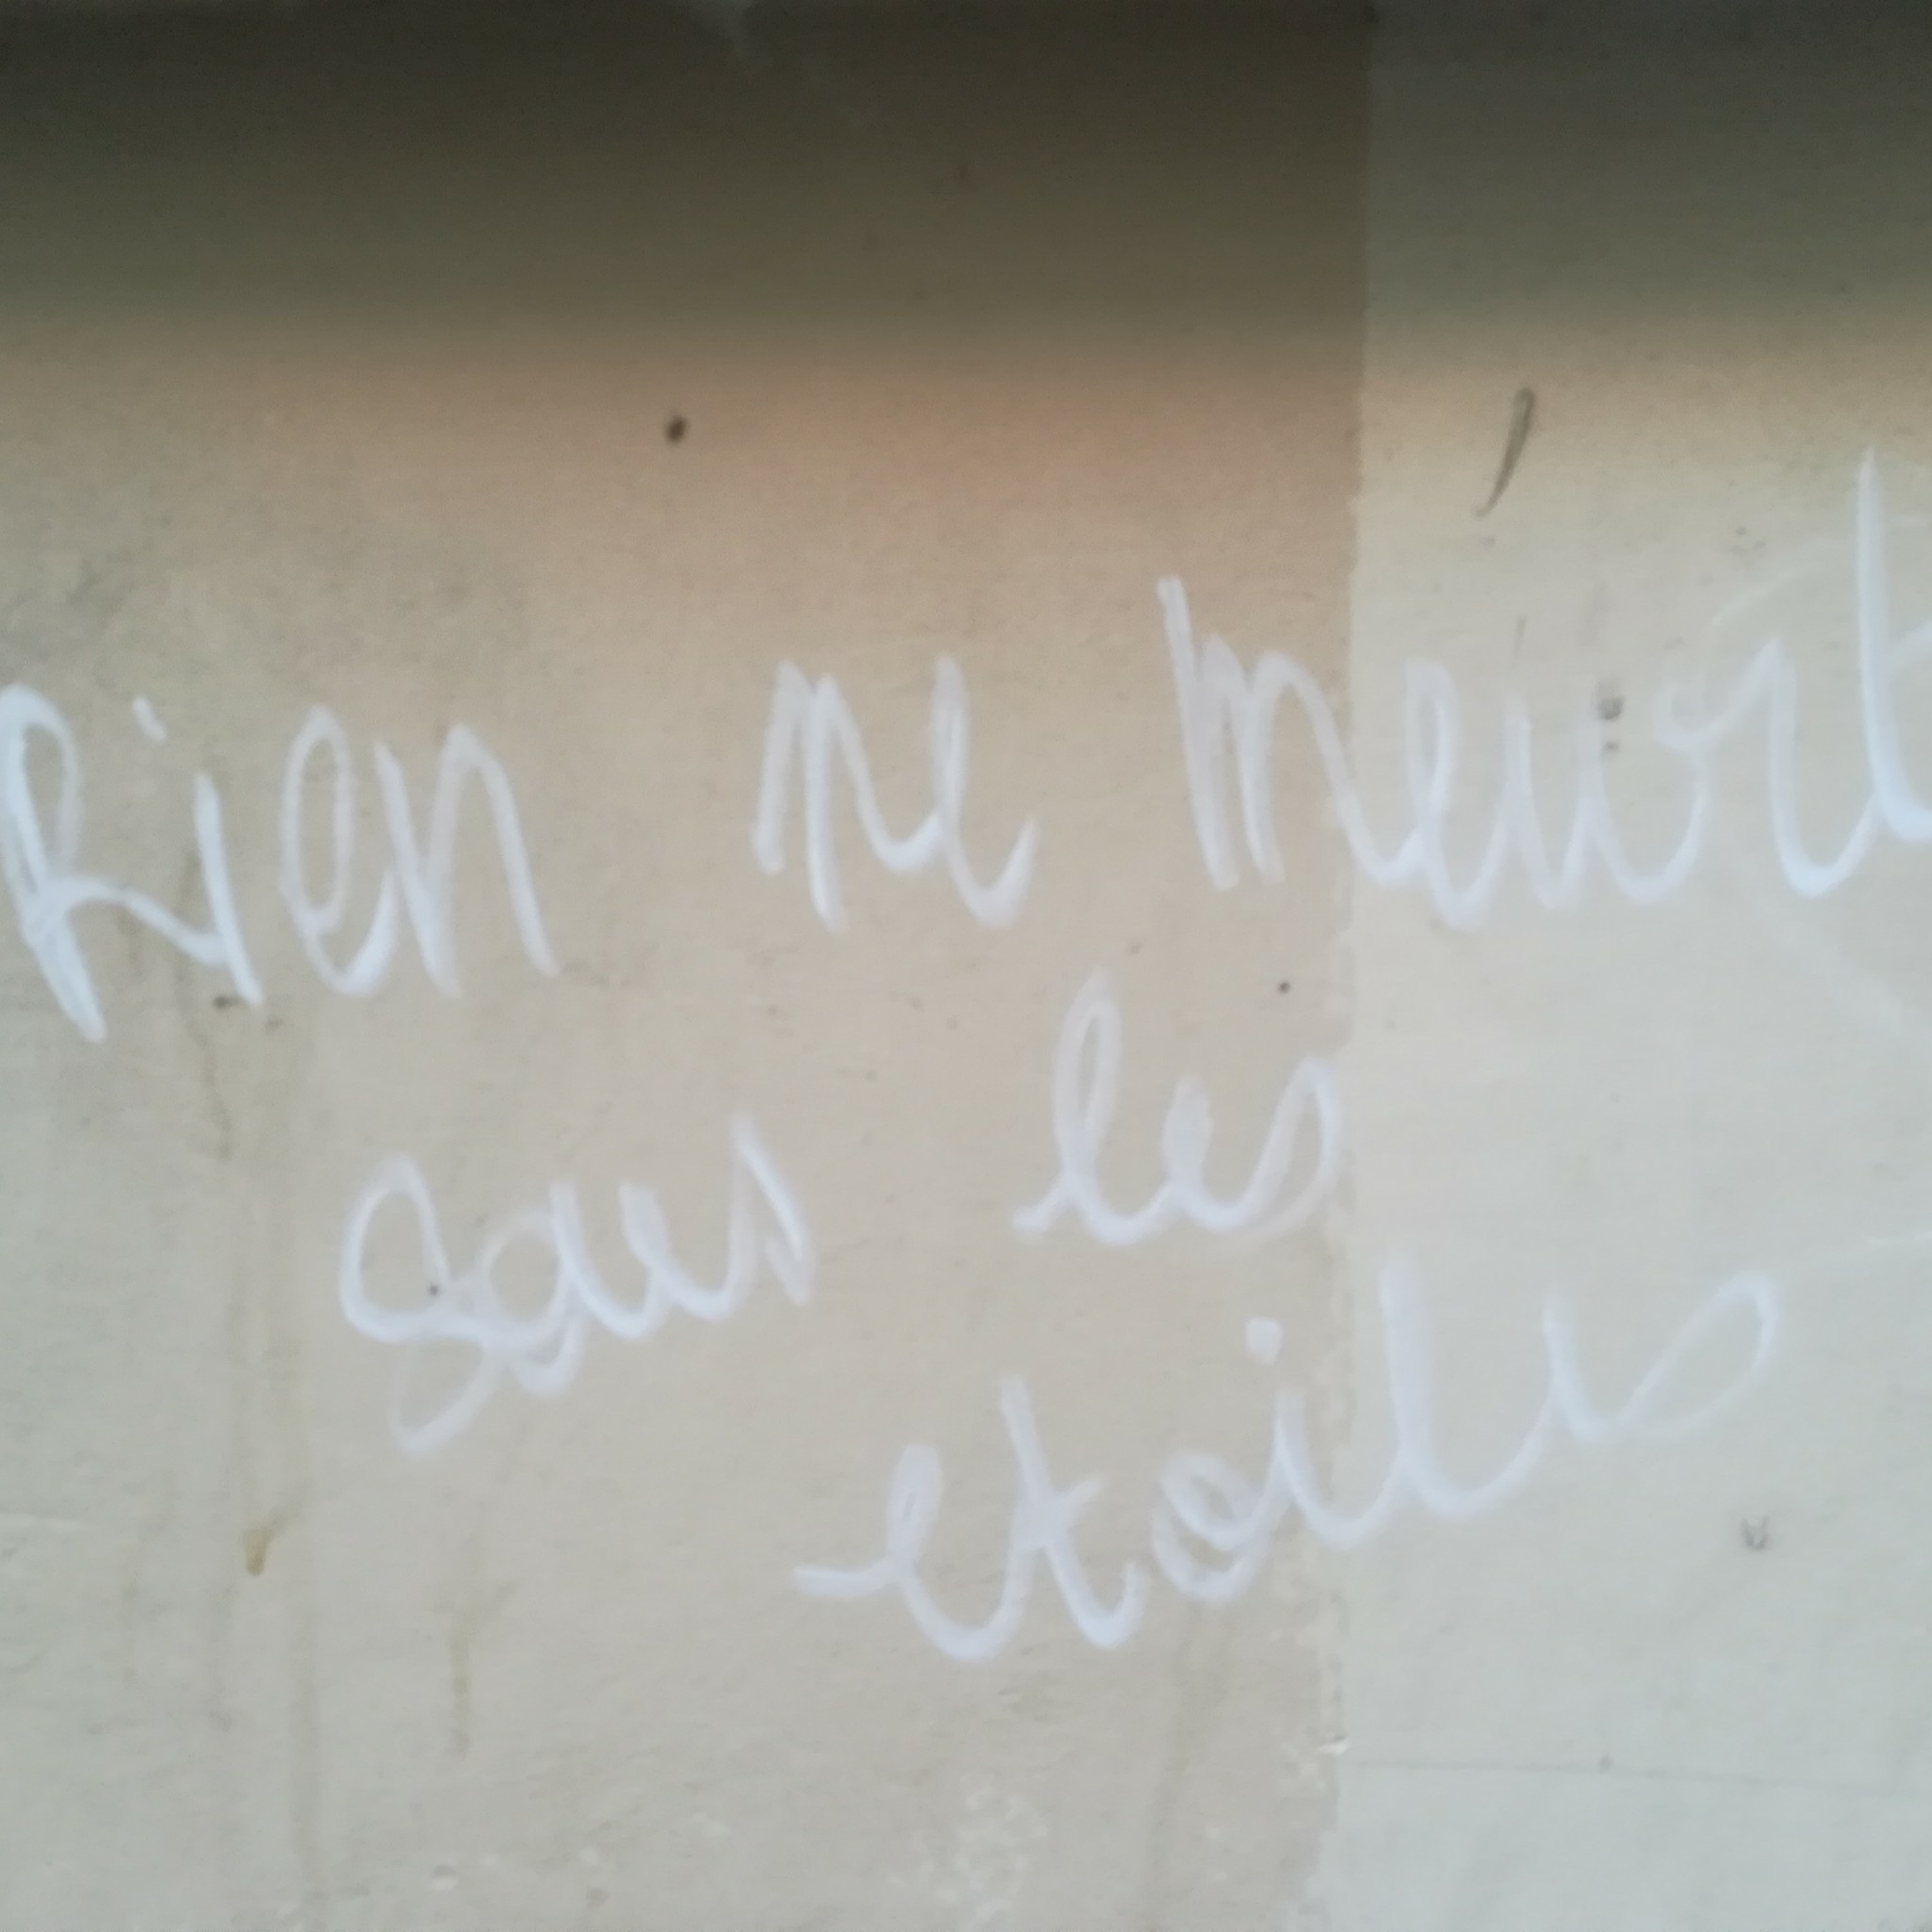 Rien ne meurt
sous les
etoiles